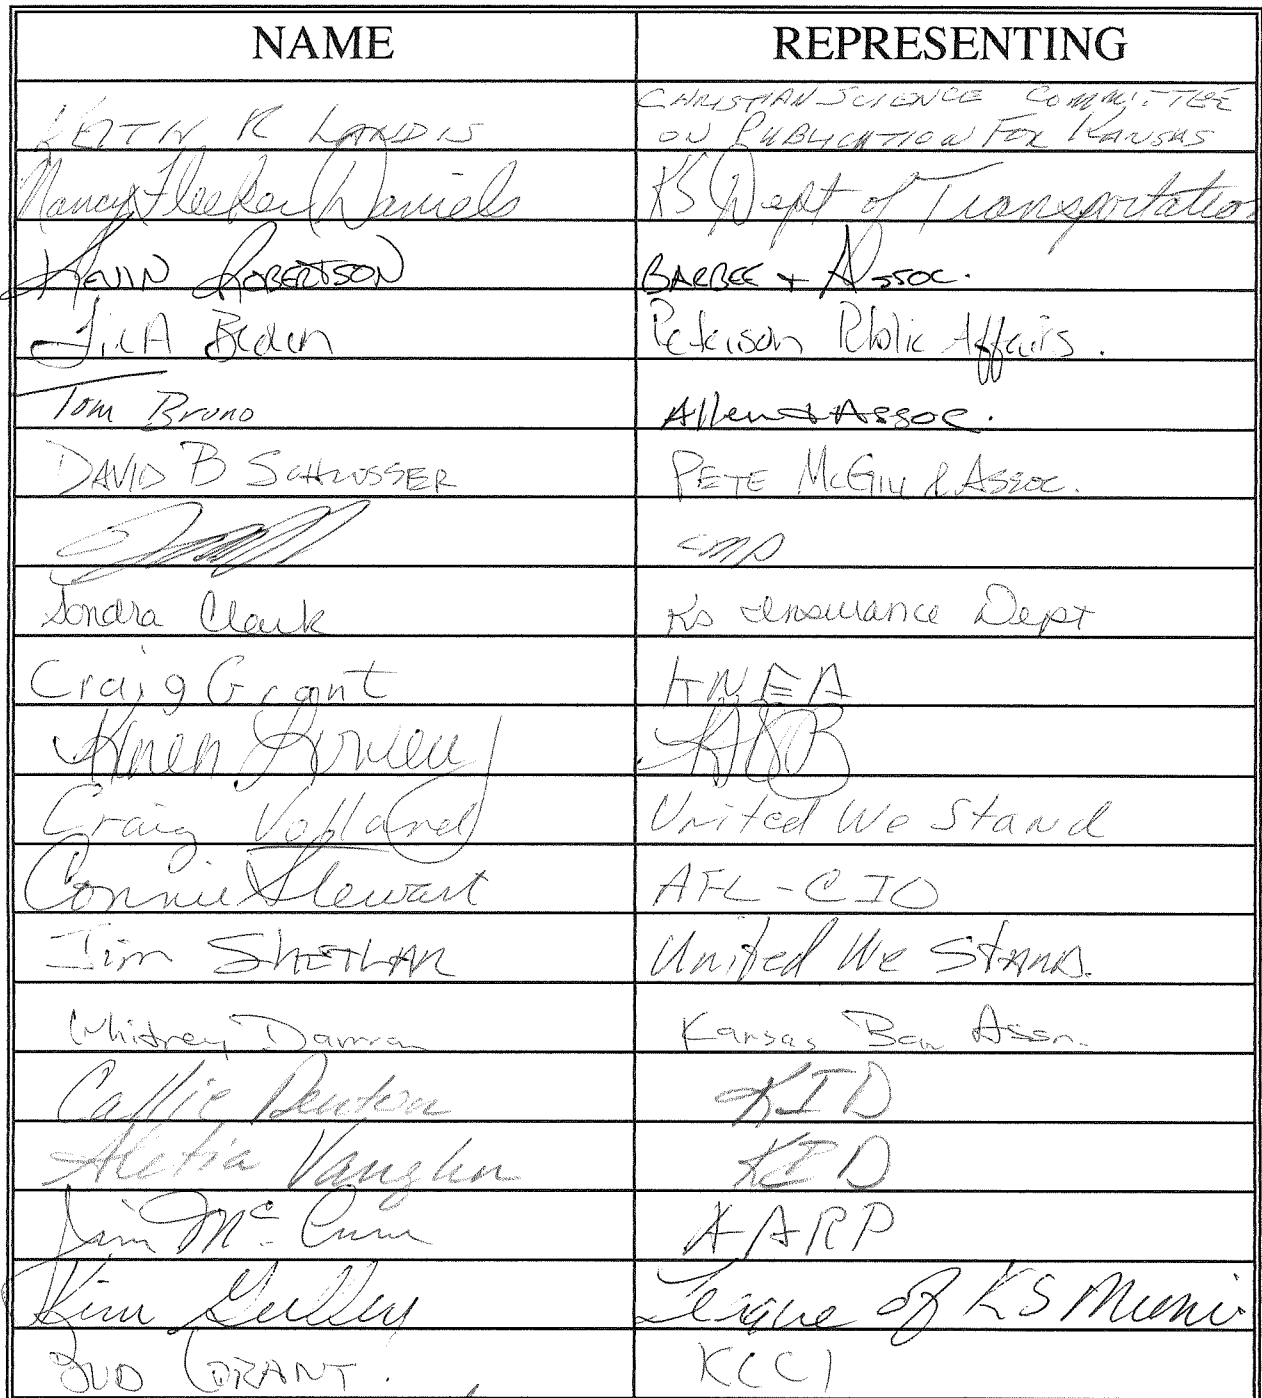 NAME REPRESENTING
KEITH R LANDIS CHRISTIAN SCIENCE COMMITTEE
ON PUBLICATION FOR KANSAS
Nancy Daniels KS Dept of Transportation
KEVIN ROBERTSON BARBEE + ASSOC.
Public Affairs.
Tom Bruno Allen & Assoc.
DAVID B SCHLOSSER PETE McGILL & ASSOC.
Sondra Clark Ks Insurance Dept
Craig Grant KNEA
United We Stand
Craig
Connie Stewart AFL-CIO
Jim SHETLAR United We STAND.
Whitney Damron Kansas Bar Assn.
Callie Denton KID
Aletia Vaughn KID
Jim AARP
Kim Gulley League of KS Muni
BUD GRANT. KCCI